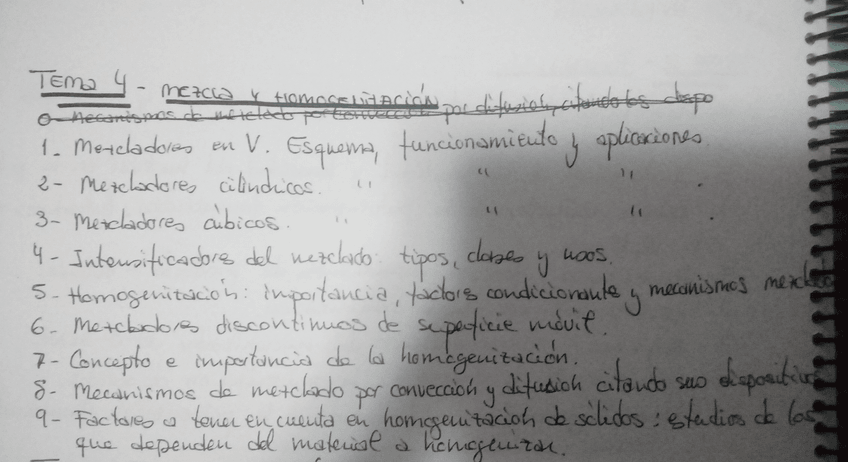 TEMA 4 - MEZCLA Y HOMOGENIZACIÓN
0- Mecanismos de mezclado por convección por difusión, citando los dispo
1- Mezcladores en V. Esquema, funcionamiento y aplicaciones.
2- Mezcladores cilíndicos. " " " .
3- Mezcladores cúbicos. " " " .
4- Intensificadores del mezclado: tipos, clases y usos.
5- Homogenización: importancia, factors condicionante y mecanismos mezclado
6- Mezcladores discontinuos de superficie móvil.
7- Concepto e importancia de la homogenización.
8- Mecanismos de mezclado por convección y difusión citando sus dispositivos
9- Factores a tener en cuenta en homogenización de sólidos: estudios de los
que dependen del material a homogenizar.